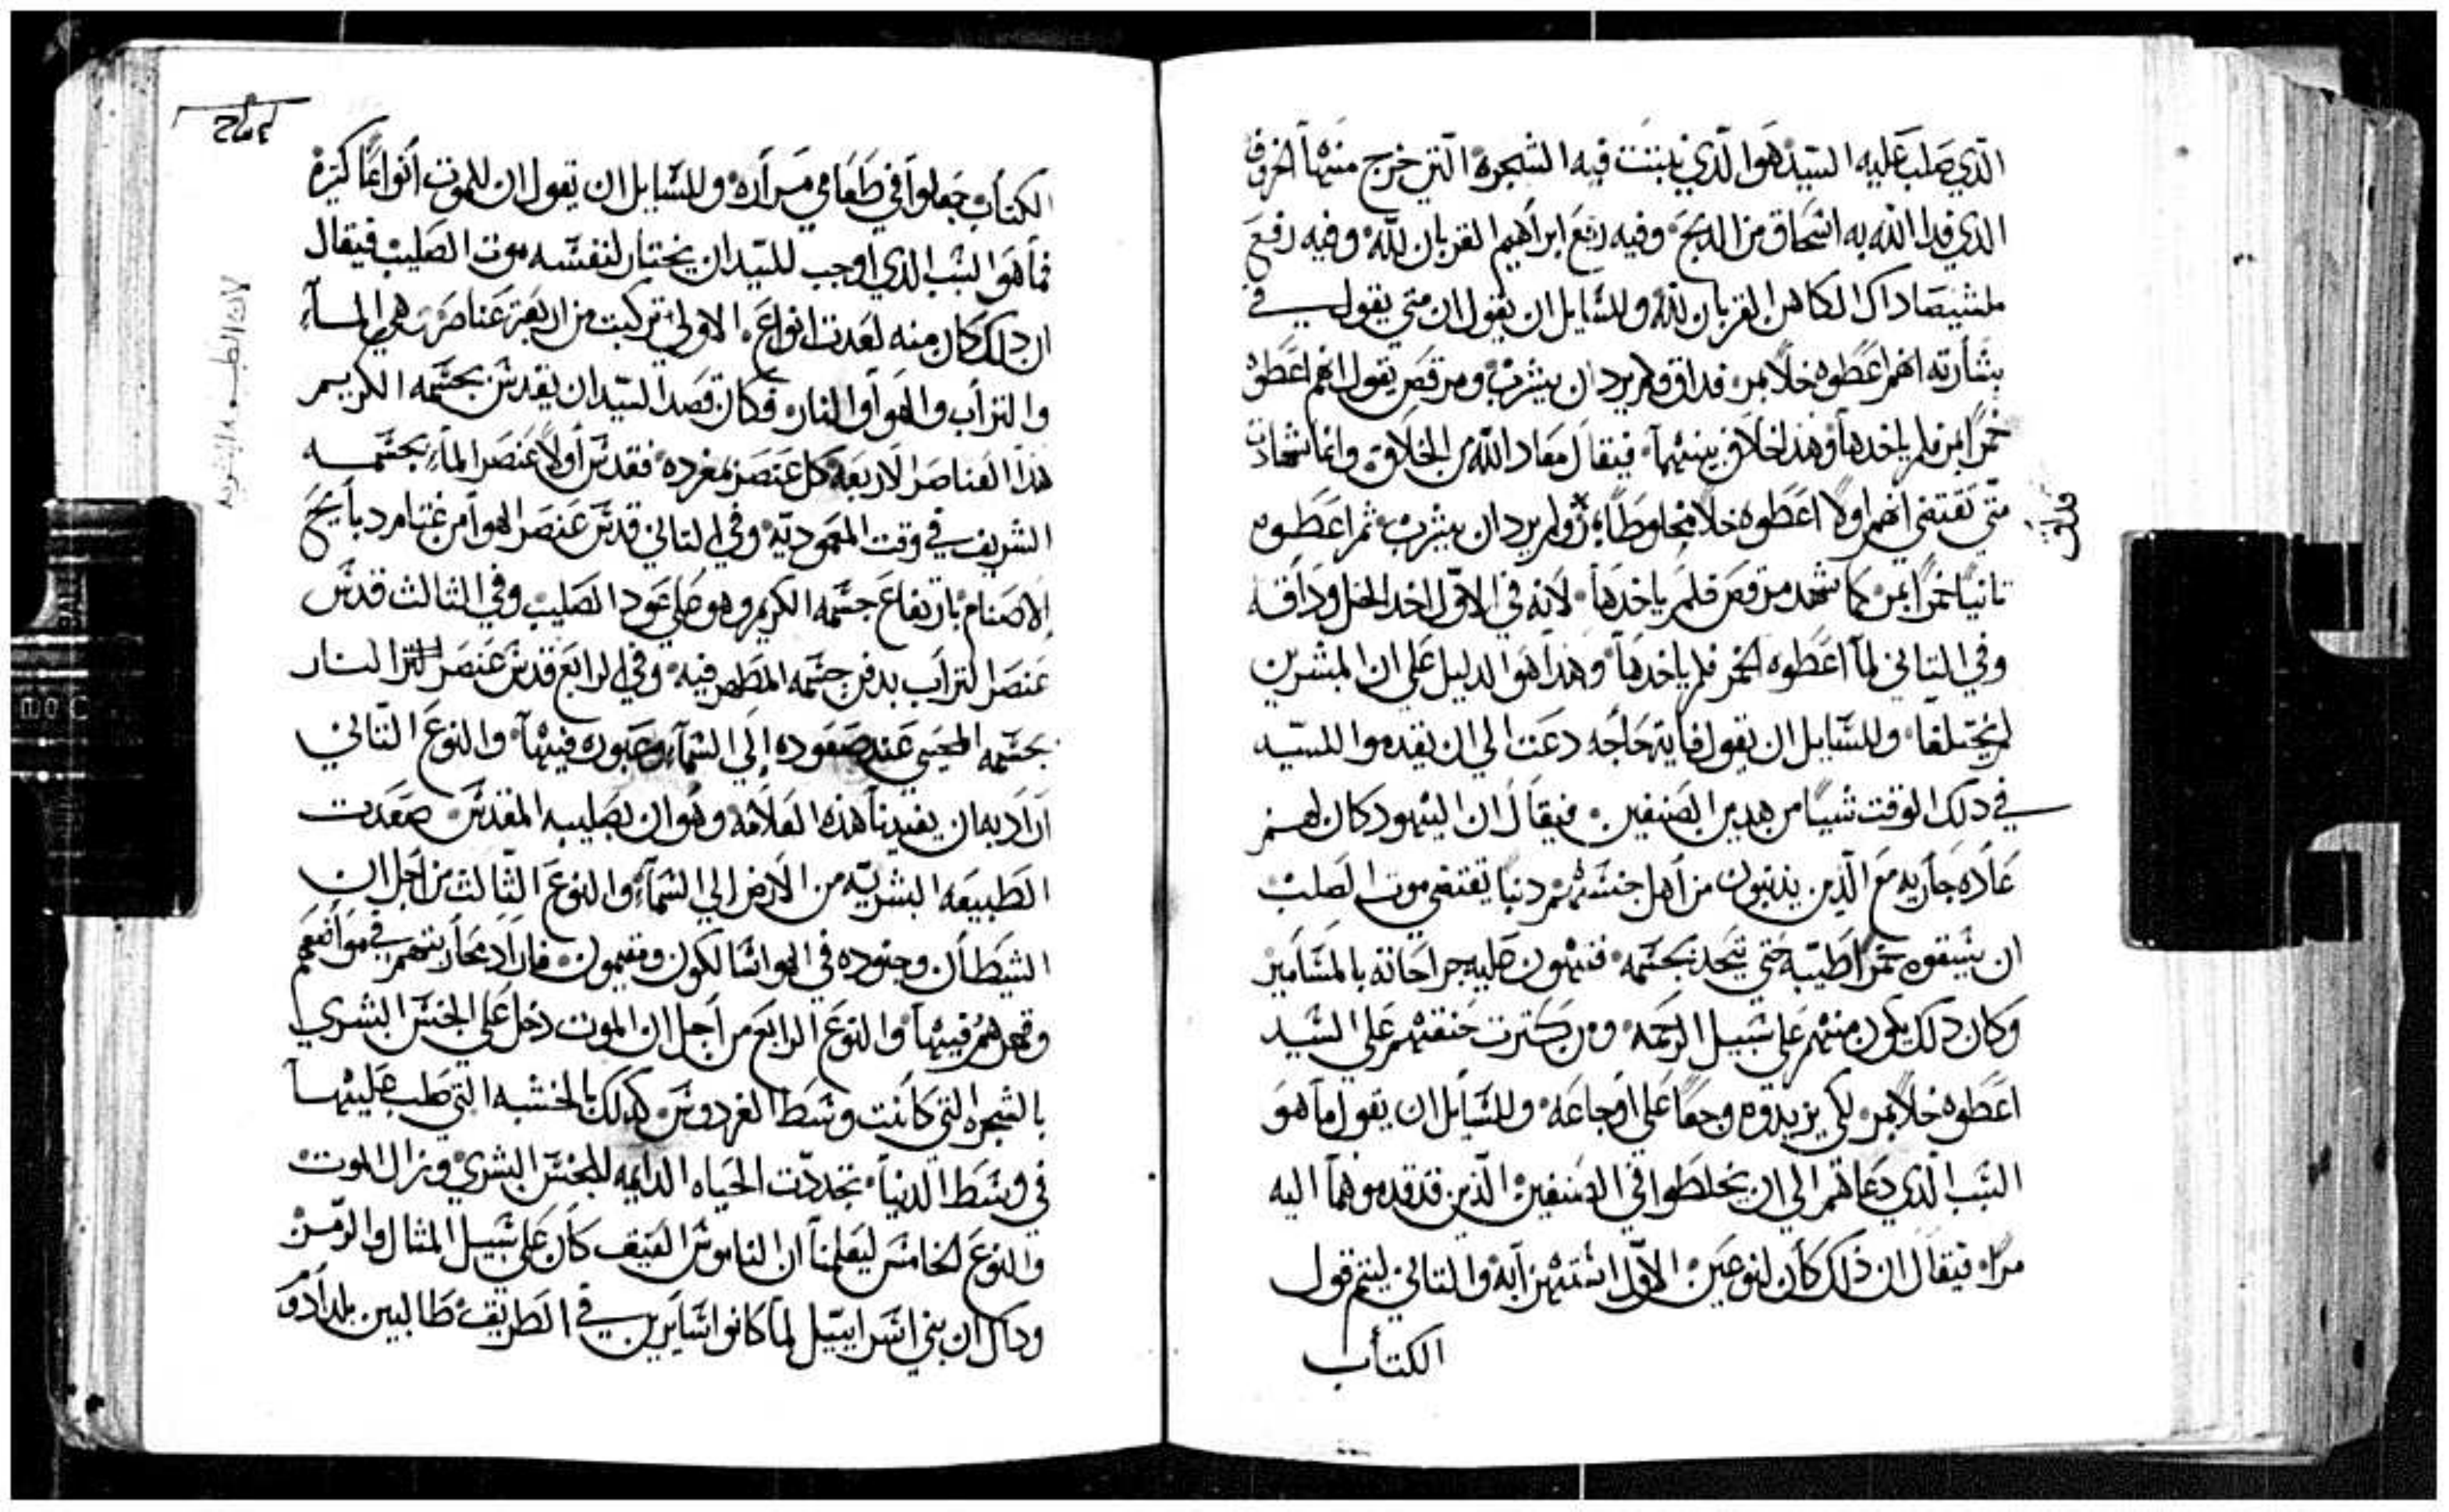 الذي صلب عليه السيد هوا الذي نبتت فيه الشجره التي خرج منها الخروف
الذي فدا الله به اسحاق من الدبح وفيه رفع ابراهيم القربان لله وفيه رفع
ملشيصاداك الكاهن القربان لله وللسايل ان يقول ان متي يقول في
بشارته انهم اعطوه خلا بمر فداق ولم يرد ان يشرب ومرقص يقول انهم اعطوه
خمرا بمر فلم ياخدها وهدا خلاف بينهما فيقال معاد الله من الخلاف وانما شهادت
متي تقتضي انهم اولا اعطوه خلا مخلوطا ولم يرد ان يشرب ثم اعطوه
مداق
تانيا خمرا بمر كما شهد مرقص فلم ياخدها لانه في الاول اخد الخل ودافه
وفي التاني لما اعطوه الخمر فلم ياخدها وهدا هو الدليل علي ان المبشرين
لم يختلفا وللسايل ان يقول فاية حاجه دعت الي ان يقدموا للسيد
في دلك الوقت شيا من هدين الصنفين فيقال ان اليهود كان لهم
عاده جاريه مع الذين يذنبون من اهل جنسهم دنبا يقتضي موت الصلب
ان يسقوه خمرا طيبه حتي تتحد بجسمه فتهون عليه جراحاته بالمسامير
وكان دلك يكون منهم علي سبيل الرحمه ومن كترت حنقهم علي السيد
اعطوه خلا بمر لكي يزيدوه وجعا علي اوجاعه وللسايل ان يقول ما هو
السبب الذي دعاهم الي ان يخلطوا في الصنفين الذين قد قدموهما اليه
مرا فيقال ان ذلك كان لنوعين الاول استهزابه والتاني ليتم قول
الكتاب
الكتاب جعلوا في طعامي مراره وللسايل ان يقول ان للموت انواعا كتيره
فما هو السبب الذي اوجب للسيد ان يختار لنفسه موت الصليب فيقال
ان دلك كان منه لعدت انواع الاولي تركبت من اربعة عناصر هي الماء
والتراب والهوا والنار فكان قصد السيد ان يقدس بجسمه الكريم
هذا العناصر الاربعه كل عنصر بمفرده فقدس اولا عنصر الماء بجسمه
الشريف في وقت المعموديه وفي التاني قدس عنصر الهوا من دبايح
الاصنام بارتفاع جسمه الكريم وهو علي عود الصليب وفي الثالث قدس
عنصر التراب بدفن جسمه المطهر فيه وفي الرابع قدس عنصر النار
بجسمه المحيي عند صعوده إلي السماء وعبوره فيها والنوع التاني
اراد به ان يفيدنا هذه العلامه وهو ان بصليبه المقدس صعدت
الطبيعه البشريه من الارض الي السماء والنوع الثالث من اجل ان
الشيطان وجنوده في الهوا سالكون ومقيمون فاراد محاربتهم في مواضعهم
وقهرهم فيها والنوع الرابع من اجل ان الموت دخل علي الجنس البشري
بالشجره التي كانت وسط الفردوس كدلك بالخشبه التي صلب عليها
في وسط الدنيا تجددت الحياه الدايمه للجنس البشري وزال الموت
والنوع الخامس ليعلمنا ان الناموس العتيق كان علي سبيل المثال والرمز
وداك ان بني اسراييل لما كانوا سايرين في الطريق طالبين بلد ادوم